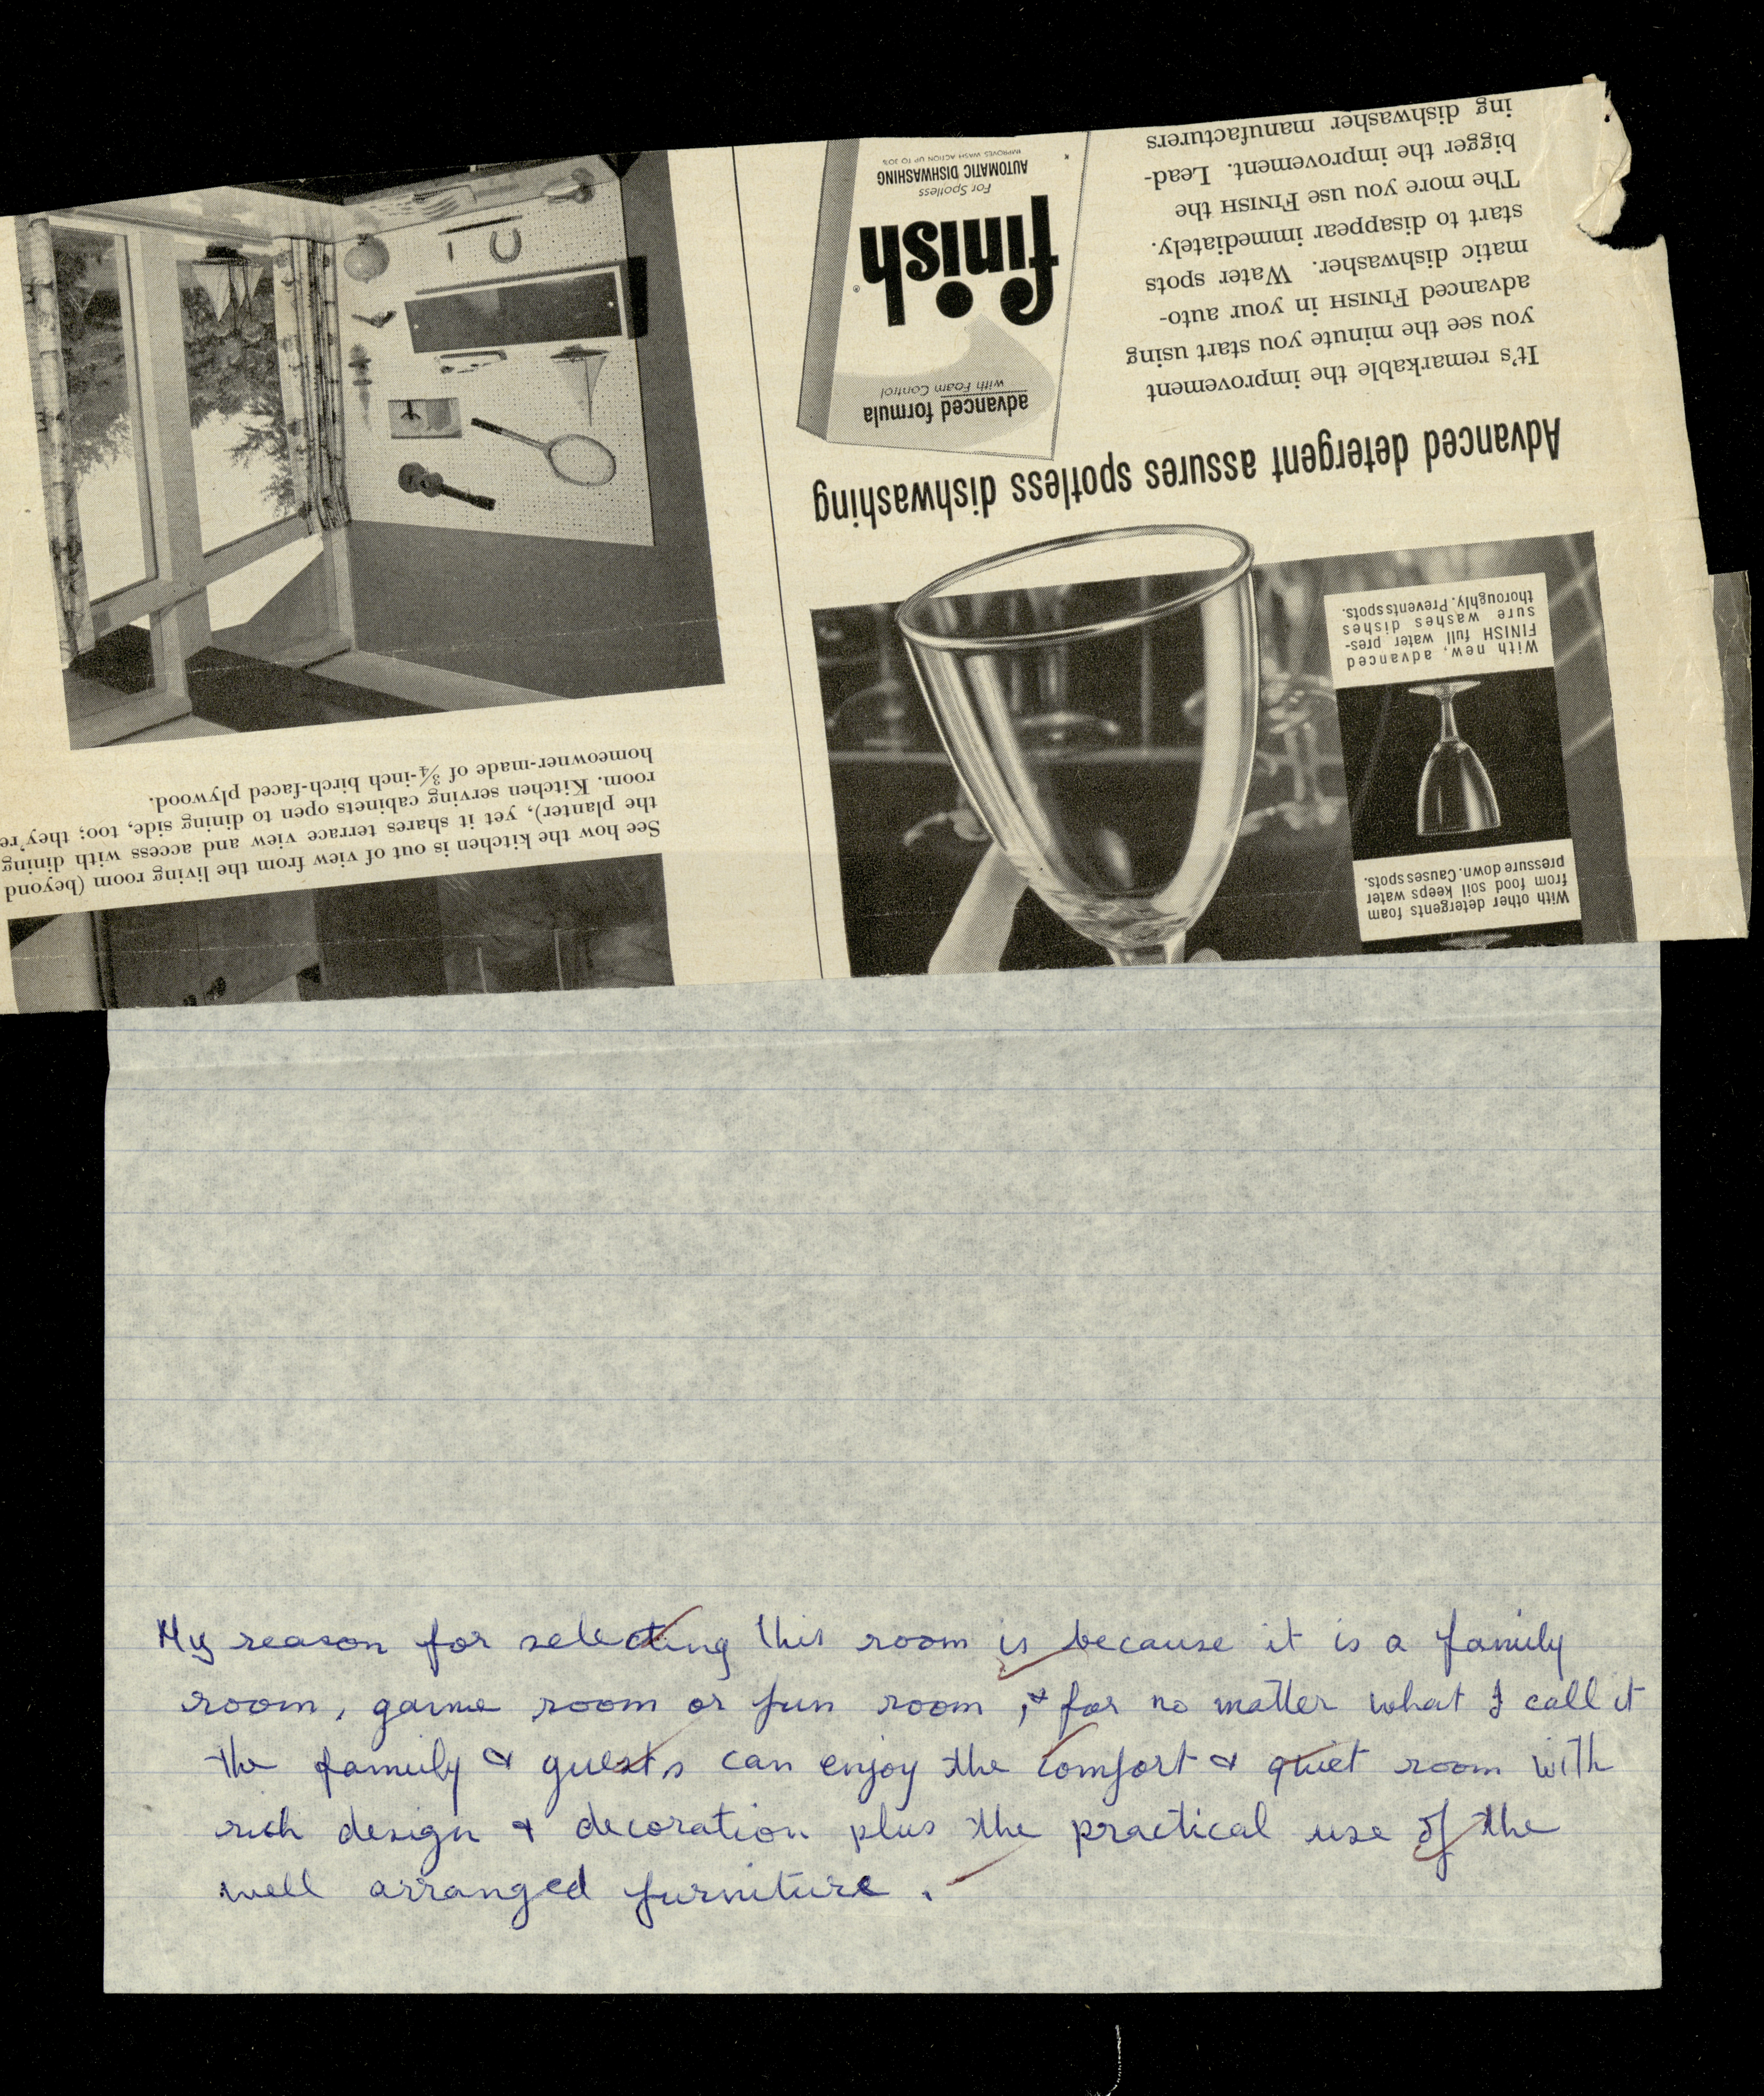 Advanced detergent assures spotless dishwashing
It's remarkable the improvement
you see the minute you start using
advanced FINISH in your auto-
matic dishwasher. Water spots
start to disappear immediately.
The more you use FINISH the
bigger the improvement. Lead-
ing dishwasher manufacturers
advanced formula
with Foam Control
finish®
For Spotless
AUTOMATIC DISHWASHING
IMPROVES WASH ACTION UP TO 30%
With other detergents foam
from food soil keeps water
pressure down. Causes spots.
With new, advanced
FINISH full water pres-
sure washes dishes
thoroughly. Prevents spots.
See how the kitchen is out of view from the living room (beyond
the planter), yet it shares terrace view and access with dining
room. Kitchen serving cabinets open to dining side, too; they're
homeowner-made of ¾-inch birch-faced plywood.
My reason for selecting this room is because it is a family
room, game room or fun room, & for no matter what I call it
the family & guests can enjoy the comfort & quiet room with
rich design & decoration plus the practical use of the
well arranged furniture.